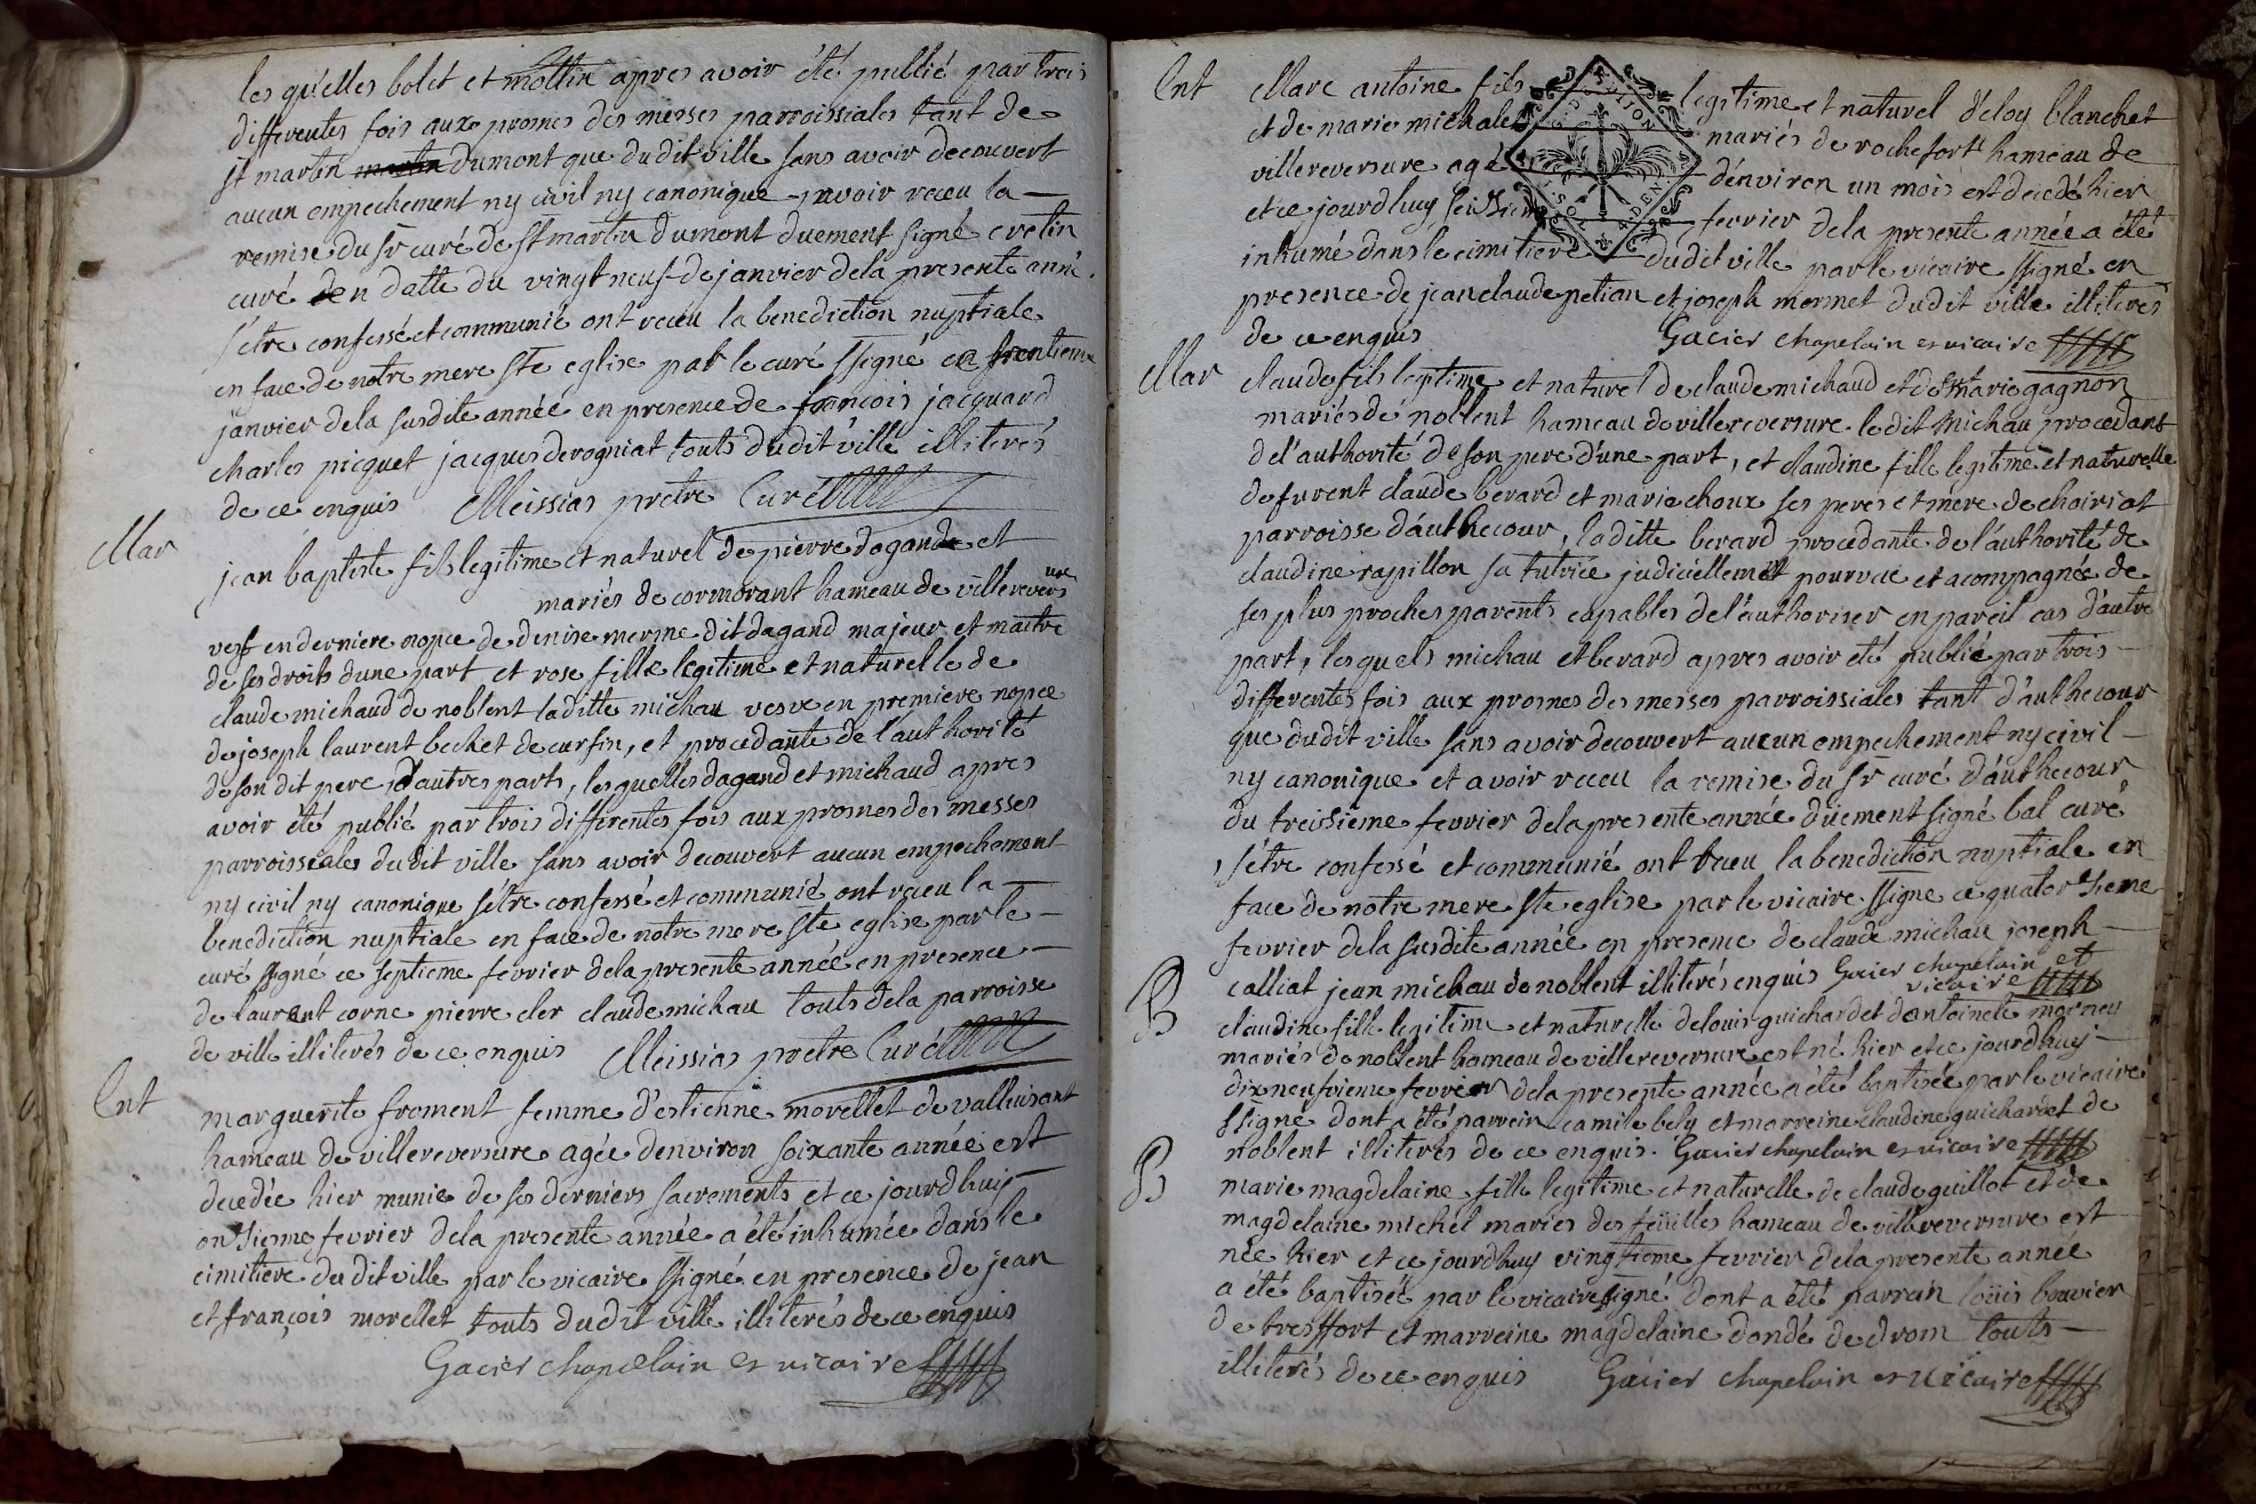 les qu'elles bolet et mottin apres avoir été publié par trois
differentes fois aux promes des messes parroissiales tant de
st martin dumont que dudit ville sans avoir decouvert
aucun empechement ny civil ny canonique avoir receu la
remise du sr curé de st martin dumont duement signé cretin
curé en datte du vingt neuf de janvier dela presente anné
s'étre confessé et communié ont receu la benediction nuptiale
en face de notre mere ste eglise par le curé ssigné ce trentieme
janvier dela susdite année en presence de françois jacquard
charles picquet jacques derogniat touts dudit ville illiterés
de ce enquis Meissias pretre Curé
Mar
jean baptiste fils legitime et naturel de pierre dagand et
mariés de cormorant hameau de villereversure
vesf en derniere nopce de denise merme dit dagand majeur et maitre
de ses droits dune part et rose fille legitime et naturelle de
claude michaud de noblent laditte michau vesve en premiere nopce
de joseph laurent bechet de curfin, et procedante de l'authorité
de son dit pere d'autres parts, lesquelles dagand et michaud apres
avoir été publié par trois differentes fois aux promes des messes
parroissiales dudit ville sans avoir decouvert aucun empechement
ny civil ny canonique s'étre confessé et communié ont receu la
benediction nuptiale en face de notre mere ste eglise par le
curé ssigné ce septieme fevrier dela presente année en presence
de laurent corne pierre cler claude michau touts dela parroisse
de ville illiterés de ce enquis Meissias pretre Curé
Ent
marguerite froment femme d'estienne morellet de valleusant
hameau de villereversure agée denviron soixante année est
decedée hier munie de ses derniers sacrements et ce jourdhuy
onzieme fevrier dela presente année a été inhumée dans le
cimitiere dudit ville par le vicaire ssigné en presence de jean
et françois morellet touts dudit ville illiterés de ce enquis
Gacier chapelain et vicaire
Ent
Marc antoine fils legitime et naturel d'eloy blanchet
et de marie michalet mariés de rochefort hameau de
villereversure agé d'environ un mois est decedé hier
et ce jourdhuy fevrier dela presente année a été
inhumé dans le cimitiere dudit ville par le vicaire ssigné en
presence de jean claude petian et joseph mermet dudit ville illiterés
de ce enquis Gacier chapelain et vicaire
Mar
claude fils legitime et naturel de claude michaud et de marie gagnon
mariés de noblent hameau de villereversure ledit michau procedant
de l'authorité de son pere d'une part, et claudine fille legitime et naturelle
de furent claude berard et marie choux ses peres et mere de choiriat
parroisse d'authecour, laditte berard procedante de l'authorité de
claudine rapillon sa tutrice judiciellement pourvue et acompagnée de
ses plus proches parents capables de l'authoriser en pareil cas d'autre
part, lesquels michau et berard apres avoir été publié par trois
differentes fois aux promes des messes parroissiales tant d'authecour
que dudit ville sans avoir decouvert aucun empechement ny civil
ny canonique et avoir receu la remise du sr curé d'authecour
du treissieme fevrier dela presente année duement signé bal curé
s'étre confessé et communié ont receu la benediction nuptiale en
face de notre mere ste eglise par le vicaire ssigne ce quatorzieme
fevrier dela susdite année en presence de claude michau joseph
calliat jean michau de noblent illiterés enquis Gacier chapelain et
vicaire
B
claudine fille legitime et naturelle de louis guichardet dantoinete
mariés de noblent hameau de villereversure est né hier et ce jourdhuy
dixneufvieme fevrier dela presente année a été baptisée par le vicaire
ssigné dont a été parrein camile bely et marreine claudine guichardet de
noblent illiterés de ce enquis. Gacier chapelain et vicaire
B
marie magdelaine fille legitime et naturelle de claude guillot et de
magdelaine michel mariés des feüilles hameau de villereversure est
née hier et ce jourdhuy vingtieme fevrier dela presente année
a été baptiséé par le vicaire ssigné dont a été parrain loüis bouvier
de tresffort et marreine magdelaine dondé de drom touts
illiterés de ce enquis Gacier chapelain et vicaire